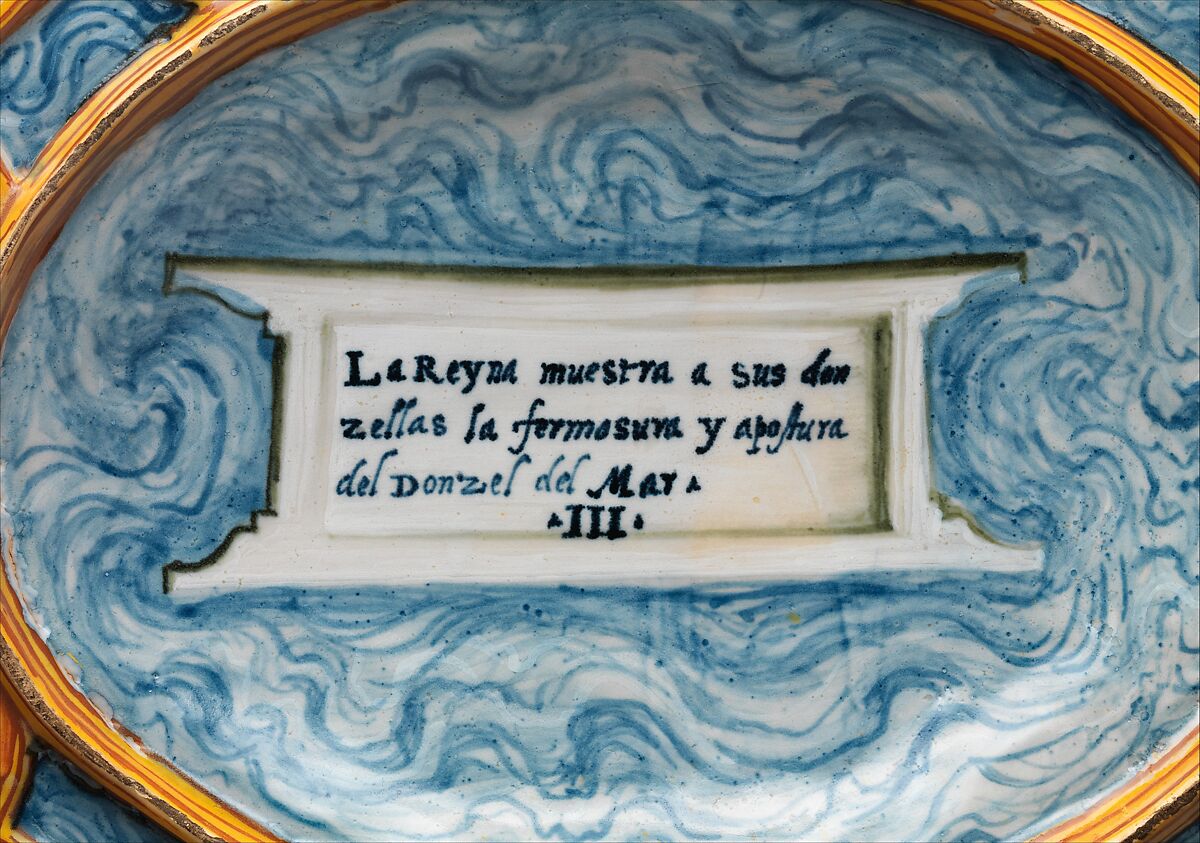 La Reyna muestra a sus don
zellas la fermosura y apostura
del Donzel del Mar.
.III.